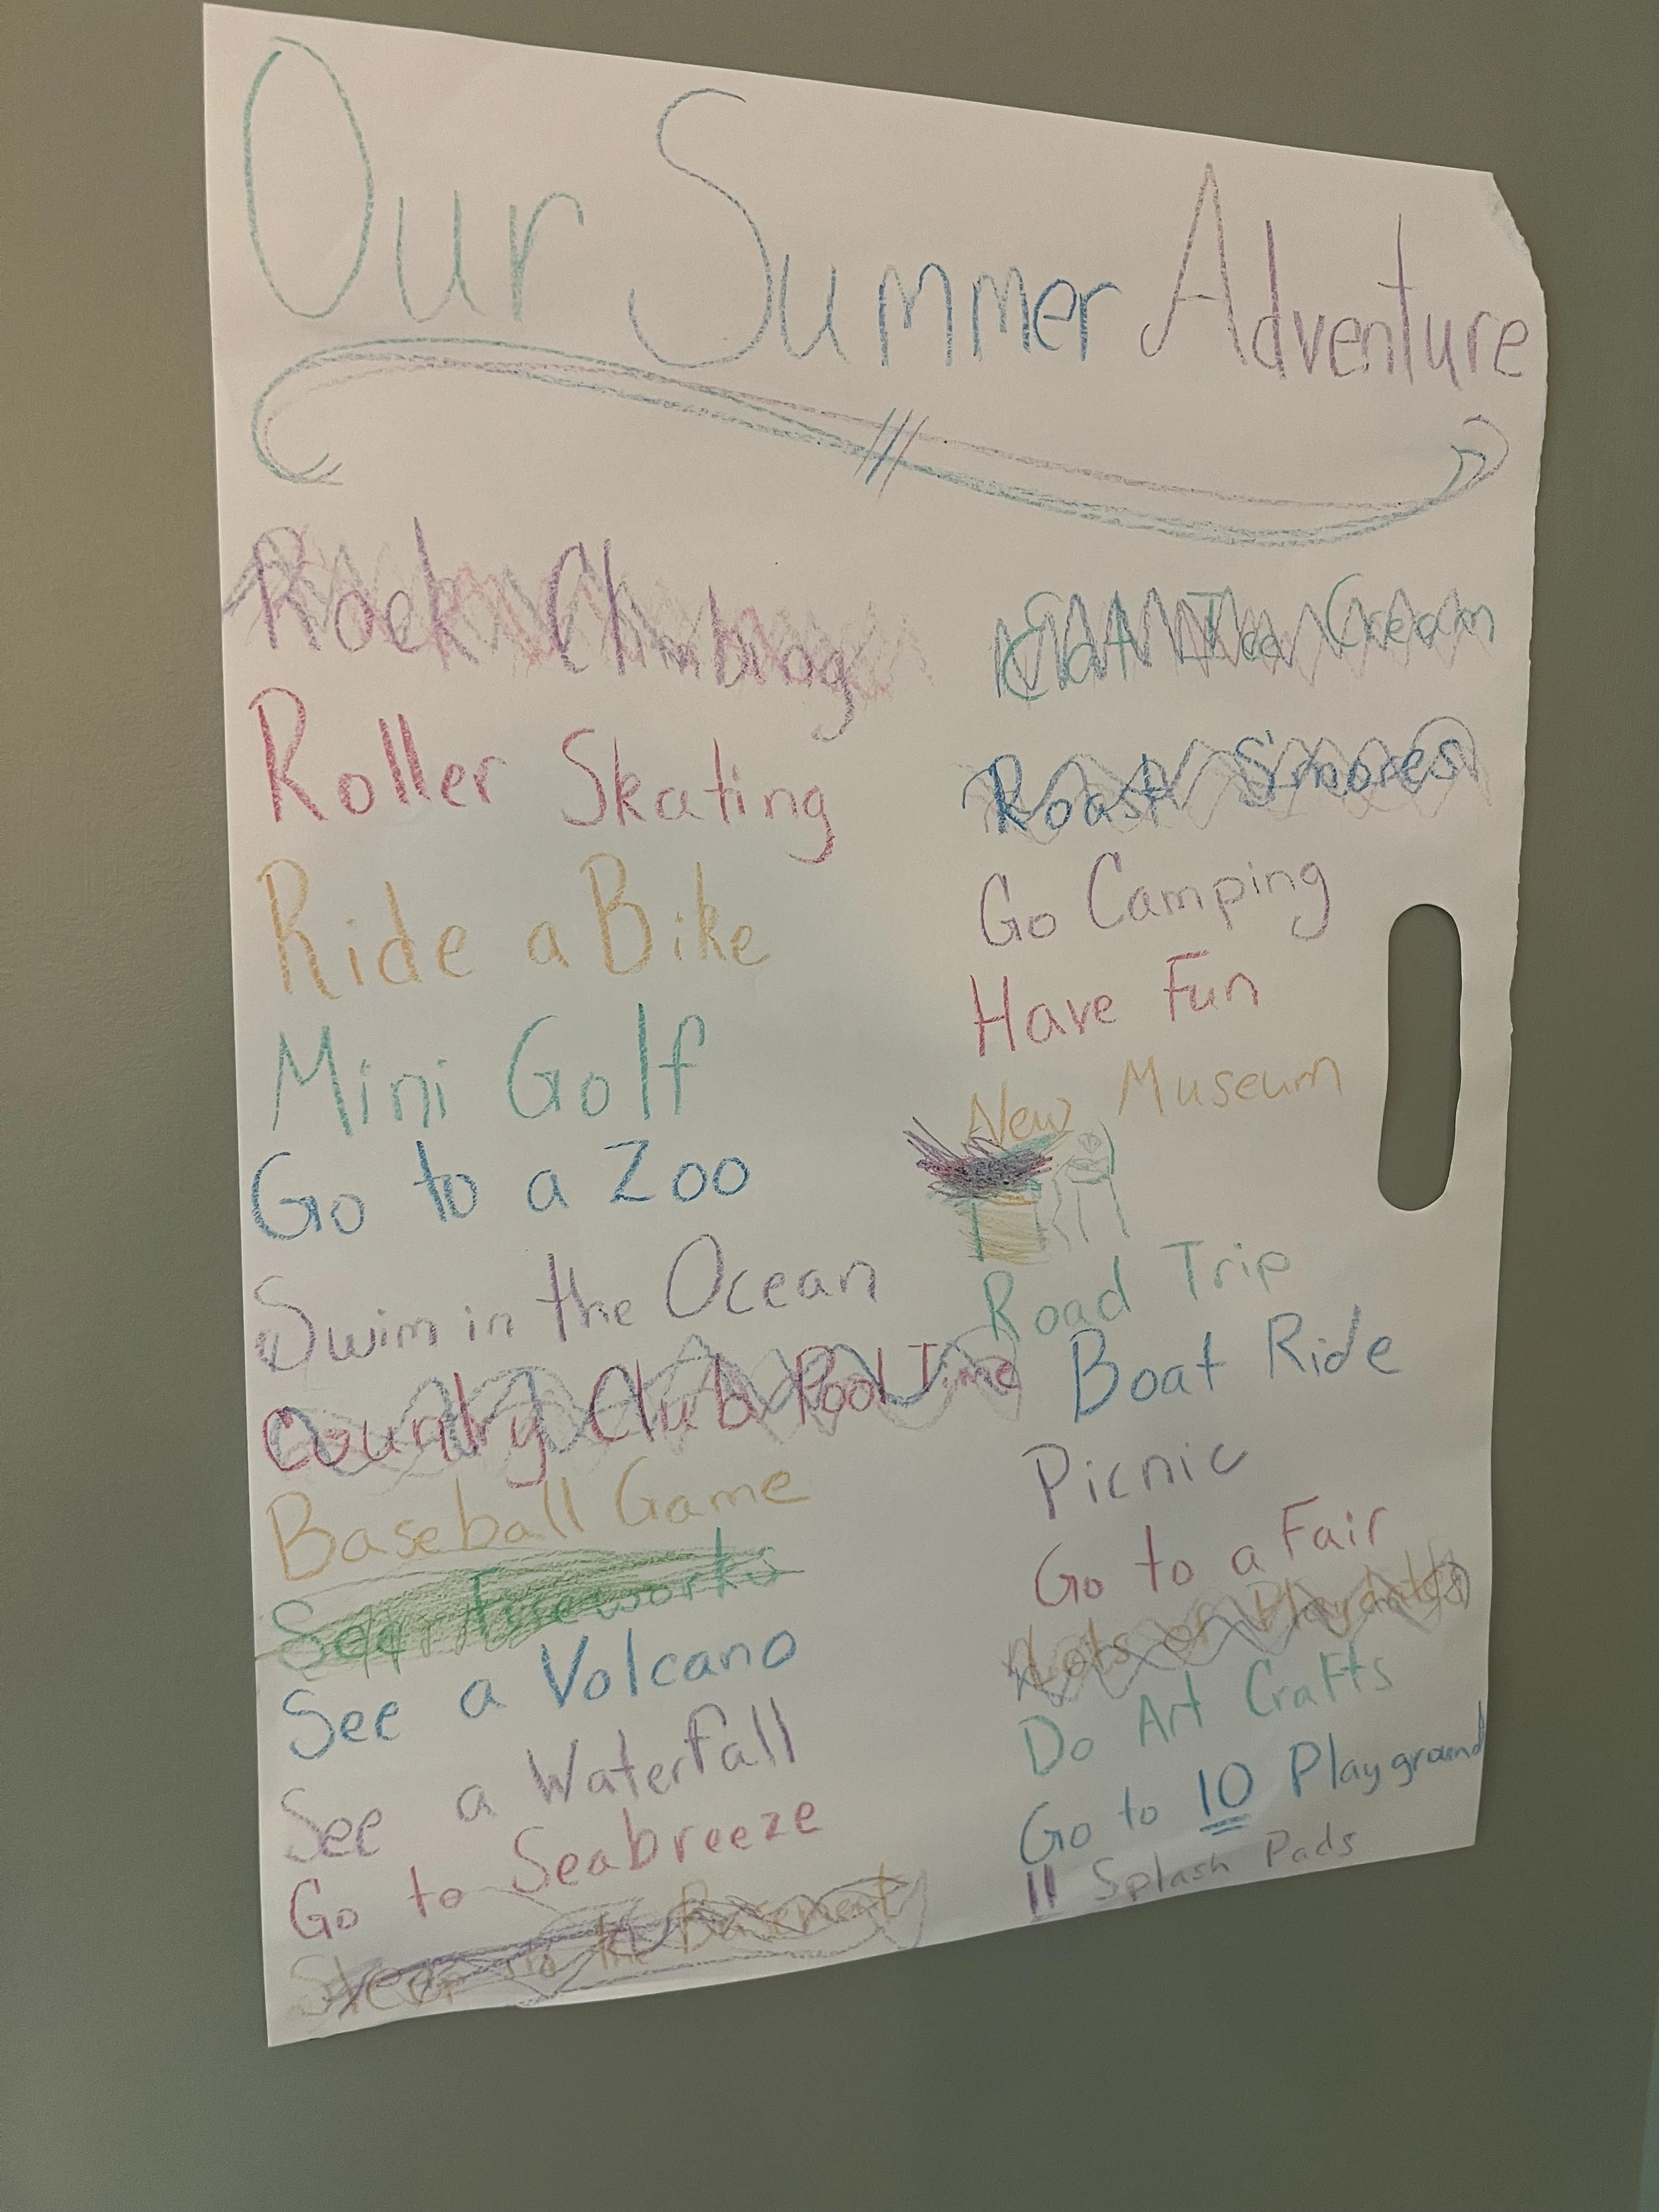 Our Summer Adventure
Rock Climbing
Roller Skating
Ride a Bike
Mini Golf
Go to a Zoo
Swim in the Ocean
Country Club Pool Time
Baseball Game
See Fireworks
See a Volcano
See a Waterfall
Go to Seabreeze
Sleep in the Basement
Eat Ice Cream
Roast S'mores
Go Camping
Have Fun
New Museum
Road Trip
Boat Ride
Picnic
Go to a Fair
Lots of Playdates
Do Art Crafts
Go to 10 Playground
11 Splash Pads